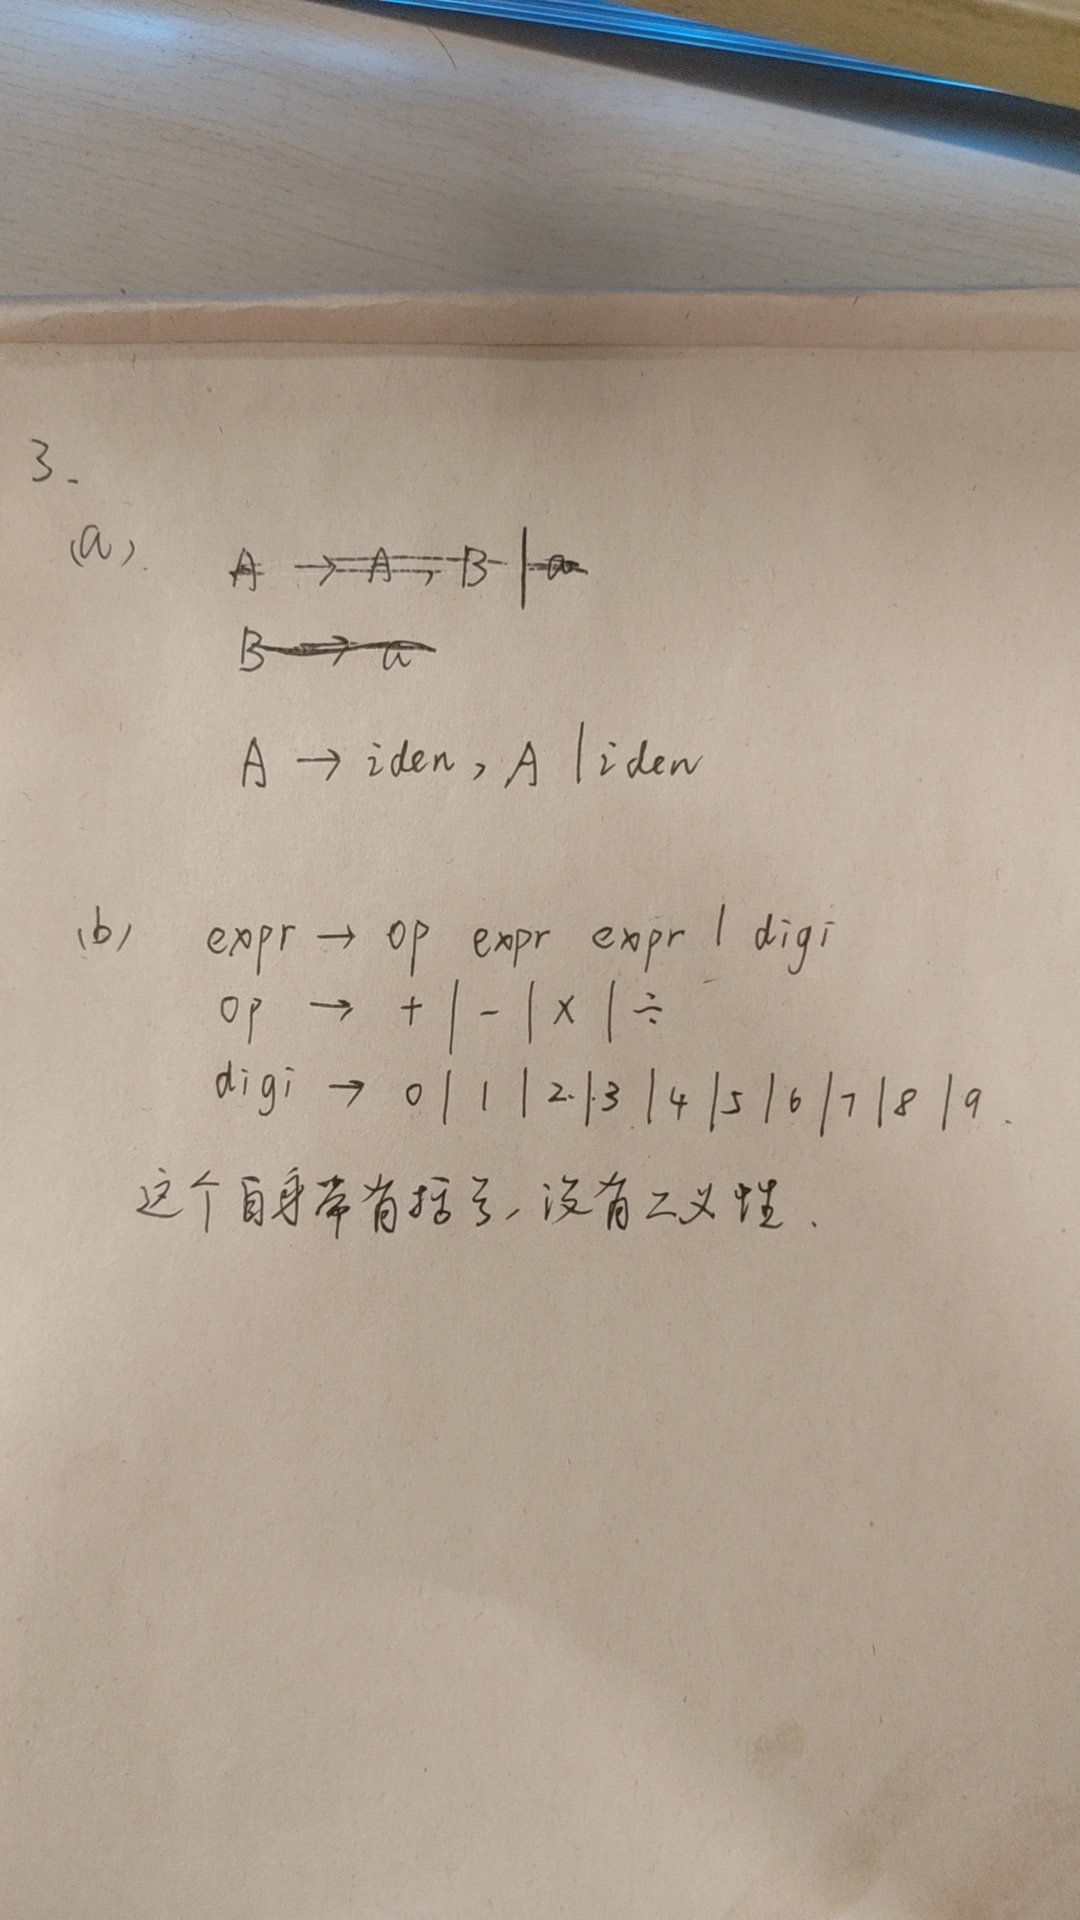 3.
(a).
A → A, B | a
B → a
A → iden, A | iden
(b) expr → op expr expr | digi
op → + | - | × | ÷
digi → 0 | 1 | 2 | 3 | 4 | 5 | 6 | 7 | 8 | 9.
这个自身带有括号,没有二义性.